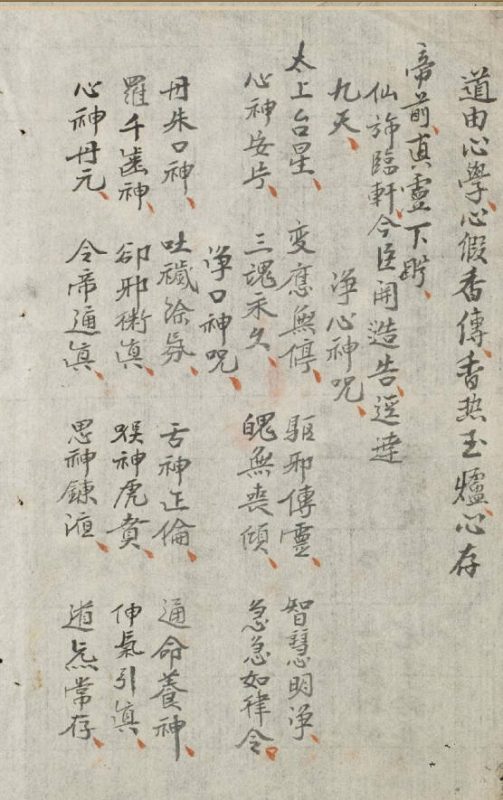 道由心學、心假香傳、香热玉爐、心存
帝前、真靈下盼、
仙斾臨軒、今臣開造告、逕達
九天、 淨心神呪、
太上台星、 变應無停、 驅邪傳靈、 智慧明淨、
心神安宁、 三魂永久、 魄無喪傾、 急急如律令。
淨口神呪、
丹朱口神、 吐穢除氛、 舌神正倫、 通命養神、
羅千歯神、 卻邪衛真、 喉神虎賁、 伸氣引真、
心神丹元、 令帝通真、 思神鍊洹、 道炁常存、